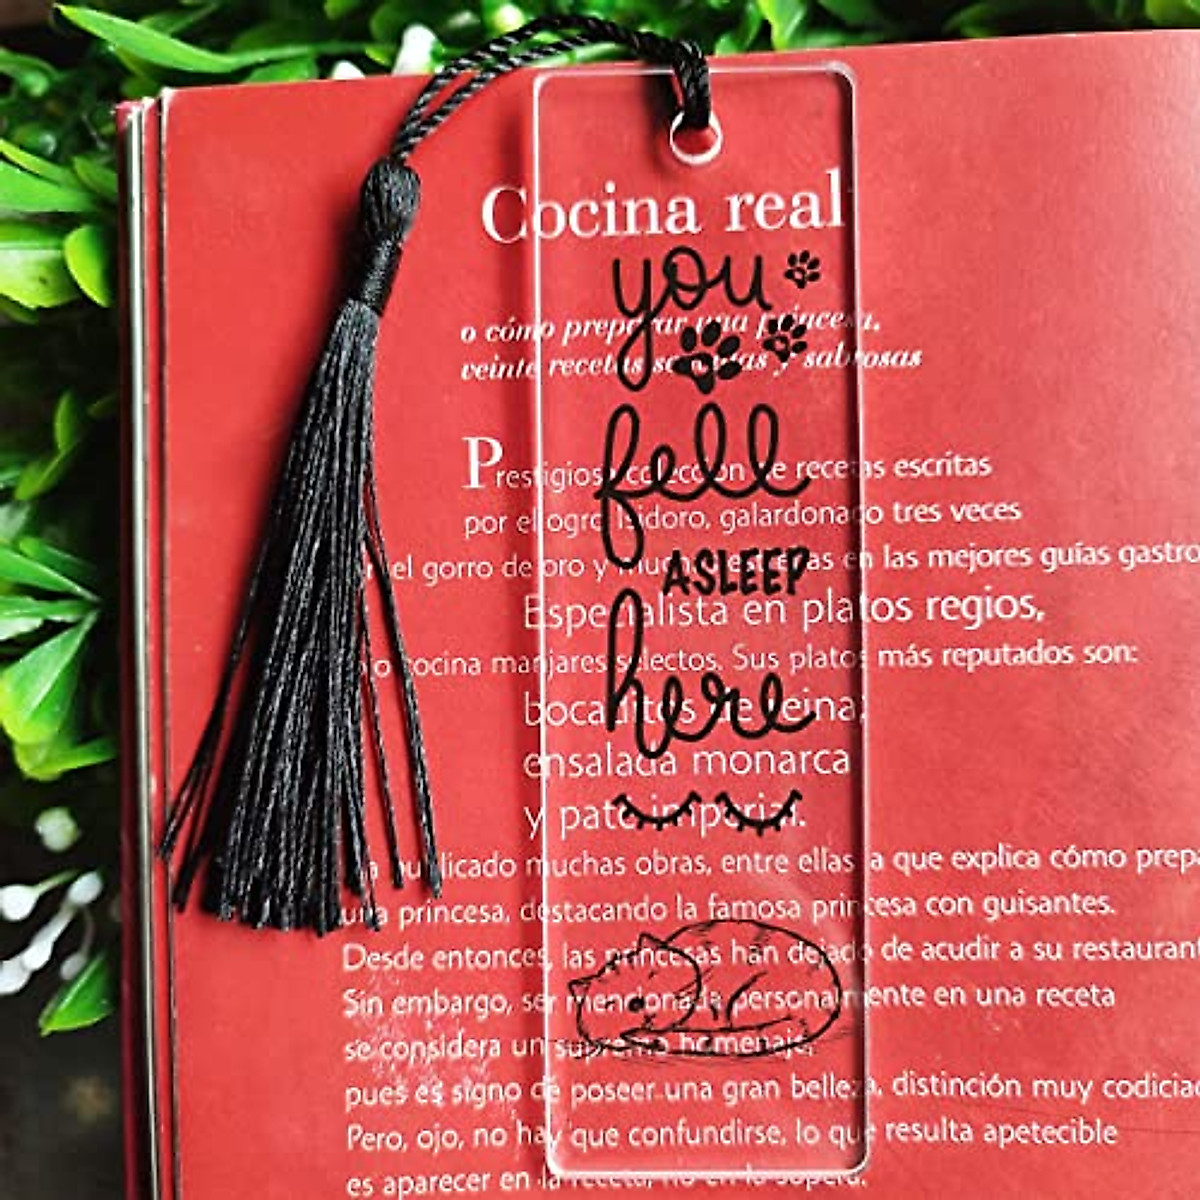 Cocina real
you
o cómo preparar una princesa,
veinte recetas sabrosas
fell
Prestigiosa colección de recetas escritas
por el ogro Isidoro, galardonado tres veces
ASLEEP
el gorro de oro y muchas estrellas en las mejores guías gastro
Especialista en platos regios,
here
cocina manjares selectos. Sus platos más reputados son:
bocaditos de reina;
ensalada monarca
y pato imperial.
Ha publicado muchas obras, entre ellas la que explica cómo prepa
una princesa, destacando la famosa princesa con guisantes.
Desde entonces, las princesas han dejado de acudir a su restauran
Sin embargo, ser mencionada personalmente en una receta
se considera un supremo homenaje,
pues es signo de poseer una gran belleza, distinción muy codicia
Pero, ojo, no hay que confundirse, lo que resulta apetecible
es aparecer en la receta, no en la sopera.